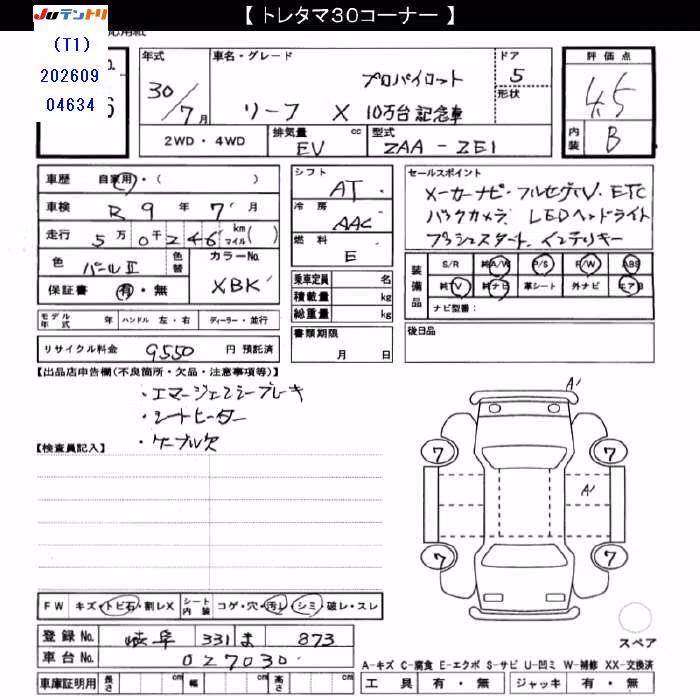 【 トレタマ30コーナー 】
JUテントリ
(T1)
202609
04634
年式 30/7月
車名・グレード
プロパイロット
リーフ X 10万台記念車
ドア 5
形状
評価点 4.5
内装 B
2WD・4WD
排気量 EV cc
型式 ZAA-ZE1
車歴 自家用・( )
車検 R 9 年 7 月
走行 5万0千246 km マイル( )
色 パールⅡ 色替
カラーNo. XBK
保証書 有・無
モデル年式 年 ハンドル 左・右 ディーラー・並行
リサイクル料金 9550 円 預託済
シフト AT
冷房 AAC
燃料 E
乗車定員 名
積載量 kg
総重量 kg
書類期限
月 日
セールスポイント
メーカーナビ・フルセグTV. ETC
バックカメラ LEDヘッドライト
プッシュスタート. インテリキー
装備品
S/R 純A/W P/S P/W ABS
純TV 純ナビ 革シート 外ナビ エアB
ナビ型番:
後日品
【出品店申告欄(不良箇所・欠品・注意事項等)】
・エマージェンシーブレーキ
・シートヒーター
・ケーブル欠
【検査員記入】
A'
7 7
A'
7 7
スペア
FW キズ・トビ石・割レX
シート内装 コゲ・穴・汚レ・シミ・破レ・スレ
登録No. 岐阜 331 ま 873
車台No. 027030
車庫証明用 長さ cm 幅 cm 高さ cm
A-キズ C-腐食 E-エクボ S-サビ U-凹ミ W-補修 XX-交換済
工具 有・無 ジャッキ 有・無